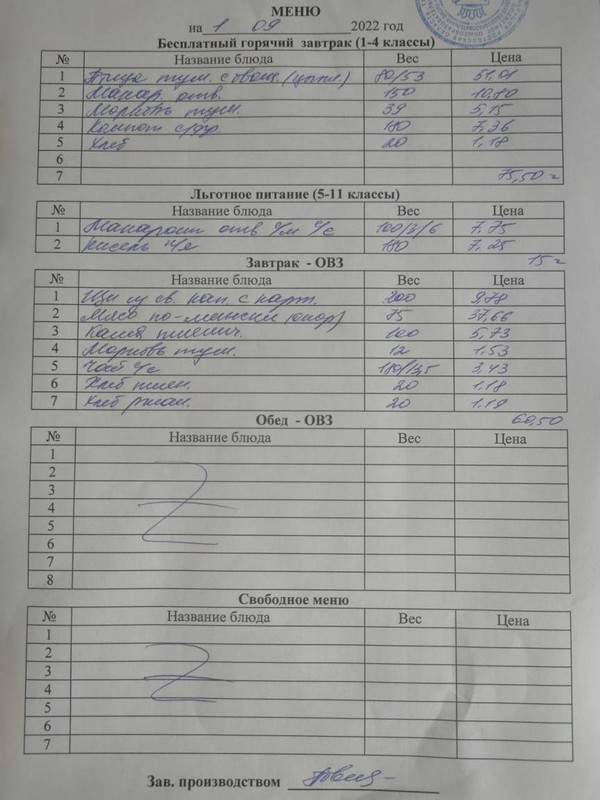 МЕНЮ
на 1 09 2022 год
Бесплатный горячий завтрак (1-4 классы)
№ Название блюда Вес Цена
1 Птица туш. с овощ. 80/53 51,01
2 Макар. отв. 150 10,80
3 Морковь туш. 39 5,15
4 Компот с/фр 180 7,36
5 Хлеб 20 1,18
6
7 75,50
Льготное питание (5-11 классы)
№ Название блюда Вес Цена
1 Макароны отв с/м с/с 100/3/6 7,75
2 Кисель 180 7,25
Завтрак - ОВЗ 15
№ Название блюда Вес Цена
1 Щи из св. кап. с карт. 200 9,78
2 Мясо 75 37,66
3 Каша пшенич. 100 5,73
4 Морковь туш. 12 1,53
5 Чай с/с 180/13,5 3,43
6 Хлеб пшен. 20 1,18
7 Хлеб ржан. 20 1,19
Обед - ОВЗ 60,50
№ Название блюда Вес Цена
1
2
3
4
5
6
7
8
Свободное меню
№ Название блюда Вес Цена
1
2
3
4
5
6
7
Зав. производством